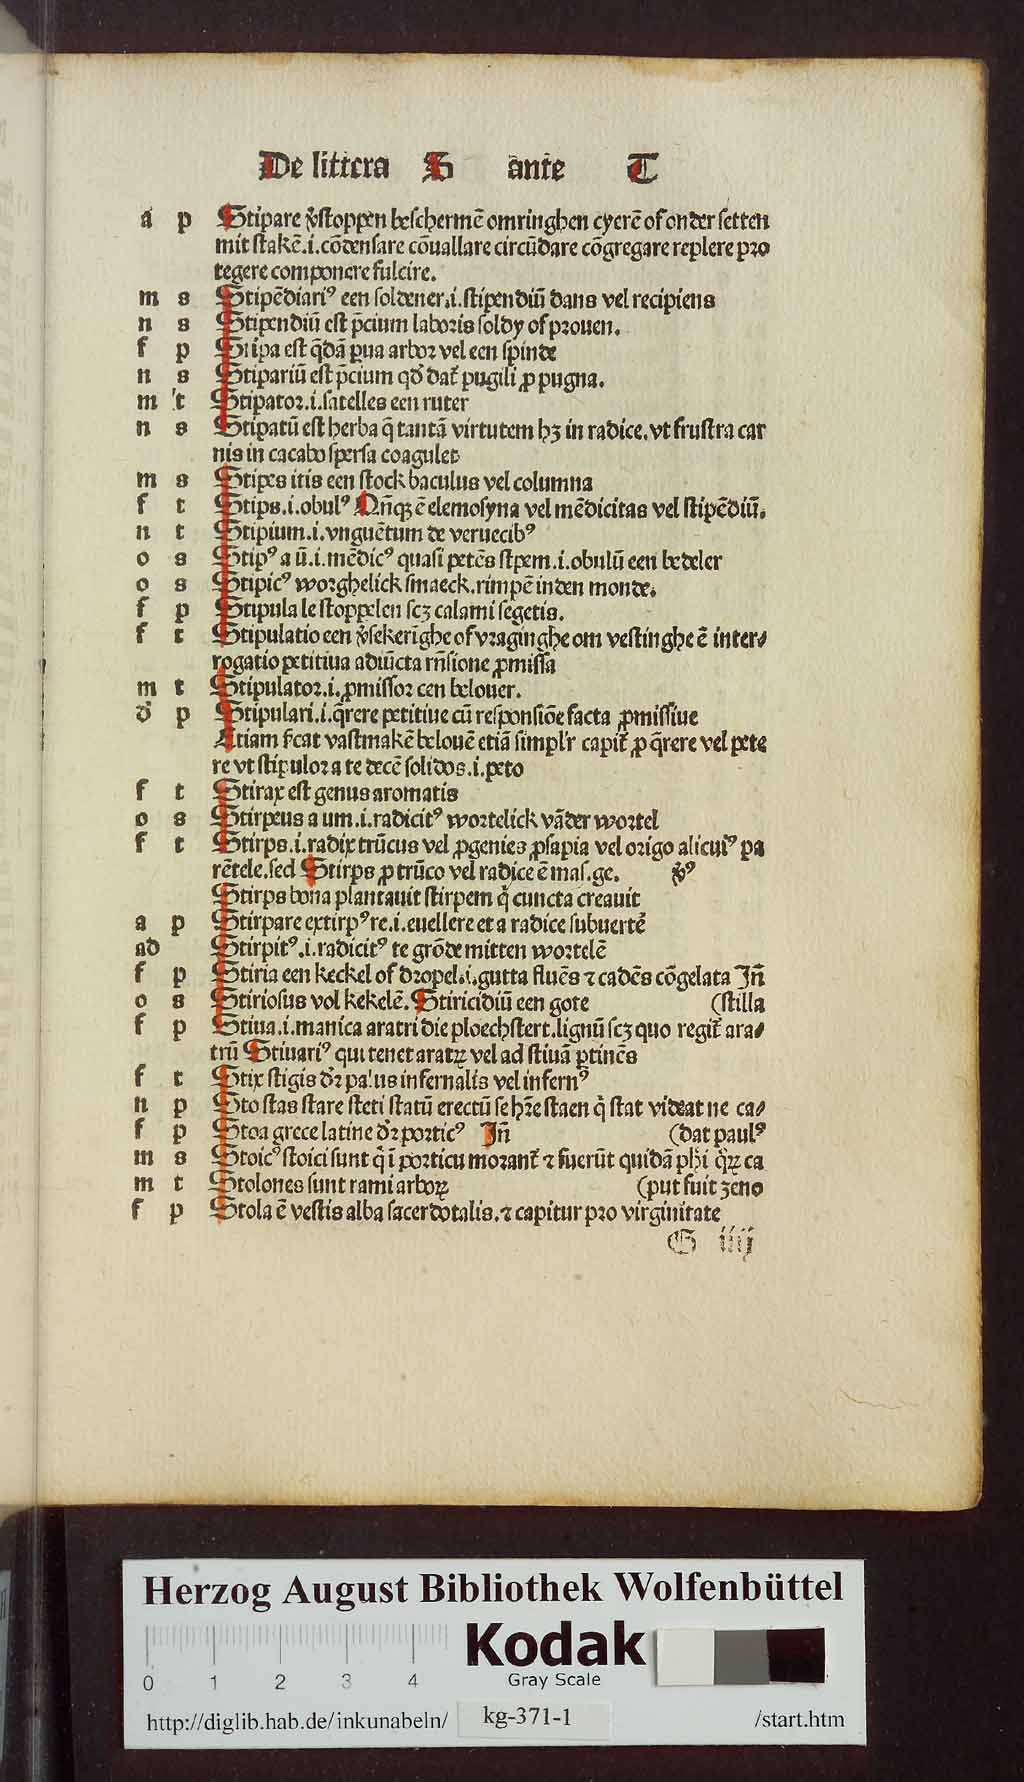 De littera S ante T
a p Stipare v̄stoppen beschermē omringhen cyerē of onder setten
mit stakē.i.cōdensare cōuallare circūdare cōgregare replere pro
tegere componere fulcire.
m s Stipēdiariꝰ een soldener.i.stipendiū dans vel recipiens
n s Stipendiū est p̄cium laboris soldy of prouen.
f p Stipa est q̄dā ꝑua arbor vel een spinde
n s Stipariū est p̄cium qd̄ dat̄ pugili ꝓ pugna.
m t Stipator.i.satelles een ruter
n s Stipatū est herba q̄ tantā virtutem hꝫ in radice.vt frustra car
nis in cacabo spersa coagulet
m s Stipes itis een stock baculus vel columna
f t Stips.i.obulꝰ Qn̄qꝫ ē elemosyna vel mēdicitas vel stipēdiū.
n t Stipium.i.vnguētum de veruecibꝰ
o s Stipꝰ a ū.i.mēdicꝰ quasi petēs stpem.i.obulū een bedeler
o s Stipicꝰ worghelick smaeck.rimpē inden monde.
f p Stipula le stoppelen scꝫ calami segetis.
f t Stipulatio een v̄sekerighe of vraginghe om vestinghe ē inter⸗
rogatio petitiua adiūcta rn̄sione ꝓmissa
m t Stipulator.i.ꝓmissor een belouer.
d̄ p Stipulari.i.q̄rere petitiue cū responsiōe facta ꝓmissiue
Etiam s̄cat vastmakē belouē etiā simpl'r capit̄ ꝓ q̄rere vel pete
re vt stipulor a te decē solidos.i.peto
f t Stirax est genus aromatis
o s Stirpeus a um.i.radicitꝰ wortelick vāder wortel
f t Stirps.i.radix trūcus vel ꝓgenies ꝓsapia vel origo alicuiꝰ pa
rētele.sed Stirps ꝓ trūco vel radice ē mas.ge. v̄ꝰ
Stirps bona plantauit stirpem q̄ cuncta creauit
a p Stirpare extirpꝰre.i.euellere et a radice subuertē
ad Stirpitꝰ.i.radicitꝰ te grōde mitten wortelē
f p Stiria een keckel of dropel.i.gutta fluēs ⁊ cadēs cōgelata In̄
o s Stiriosus vol kekelē. Stiricidiū een gote (stilla
f p Stiua.i.manica aratri die ploechstert.lignū scꝫ quo regit̄ ara⸗
trū Stiuariꝰ qui tenet aratꝝ vel ad stiuā ꝑtinēs
f t Stix stigis dr̄ palus infernalis vel infernꝰ
n p Sto stas stare steti statū erectū se hr̄e staen q̄ stat videat ne ca⸗
f p Stoa grece latine dr̄ porticꝰ In̄ (dat paulꝰ
m s Stoicꝰ stoici sunt q̄ ī porticu morant̄ ⁊ fuerūt quidā ph̄i q̄ꝝ ca
m t Stolones sunt rami arboꝝ (put fuit zeno
f p Stola ē vestis alba sacerdotalis.⁊ capitur pro virginitate
S iiij
Herzog August Bibliothek Wolfenbüttel
Kodak
Gray Scale
0 1 2 3 4
http://diglib.hab.de/inkunabeln/ kg-371-1 /start.htm